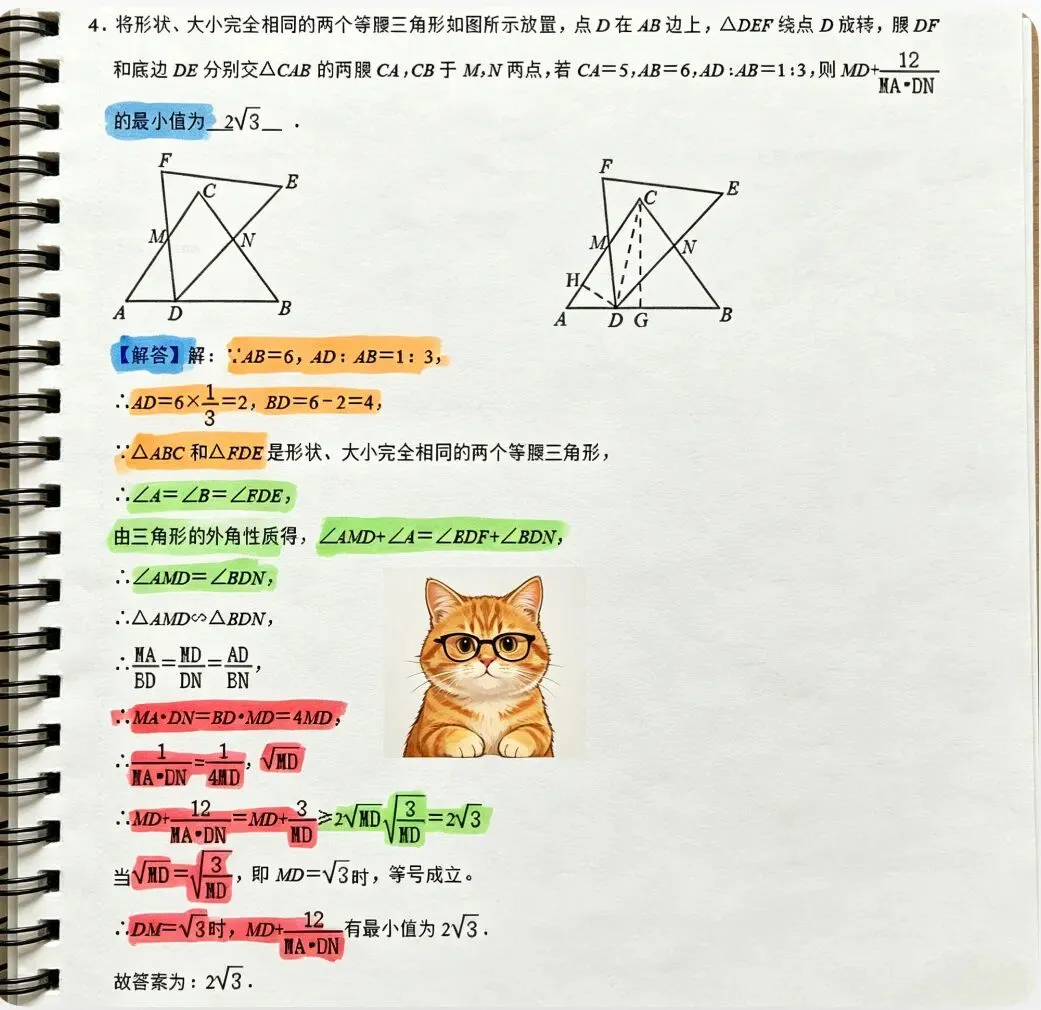 4. 将形状、大小完全相同的两个等腰三角形如图所示放置，点 D 在 AB 边上，△DEF 绕点 D 旋转，腰 DF
和底边 DE 分别交△CAB 的两腰 CA,CB 于 M,N 两点,若 CA=5,AB=6,AD:AB=1:3,则 MD+12/(MA•DN)
的最小值为 2√3 .
F
C
E
M
N
A
D
B
F
C
E
M
N
H
A
D
G
B
【解答】解：∵AB=6，AD：AB=1：3，
∴AD=6×1/3=2，BD=6-2=4，
∵△ABC 和△FDE 是形状、大小完全相同的两个等腰三角形，
∴∠A=∠B=∠FDE，
由三角形的外角性质得，∠AMD+∠A=∠BDF+∠BDN，
∴∠AMD=∠BDN，
∴△AMD∽△BDN，
∴MA/BD=MD/DN=AD/BN，
∴MA•DN=BD•MD=4MD，
∴1/(MA•DN)=1/(4MD)，√MD
∴MD+12/(MA•DN)=MD+3/MD≥2√MD√(3/MD)=2√3
当√MD=√(3/MD)，即 MD=√3时，等号成立。
∴DM=√3时，MD+12/(MA•DN)有最小值为 2√3．
故答案为：2√3．